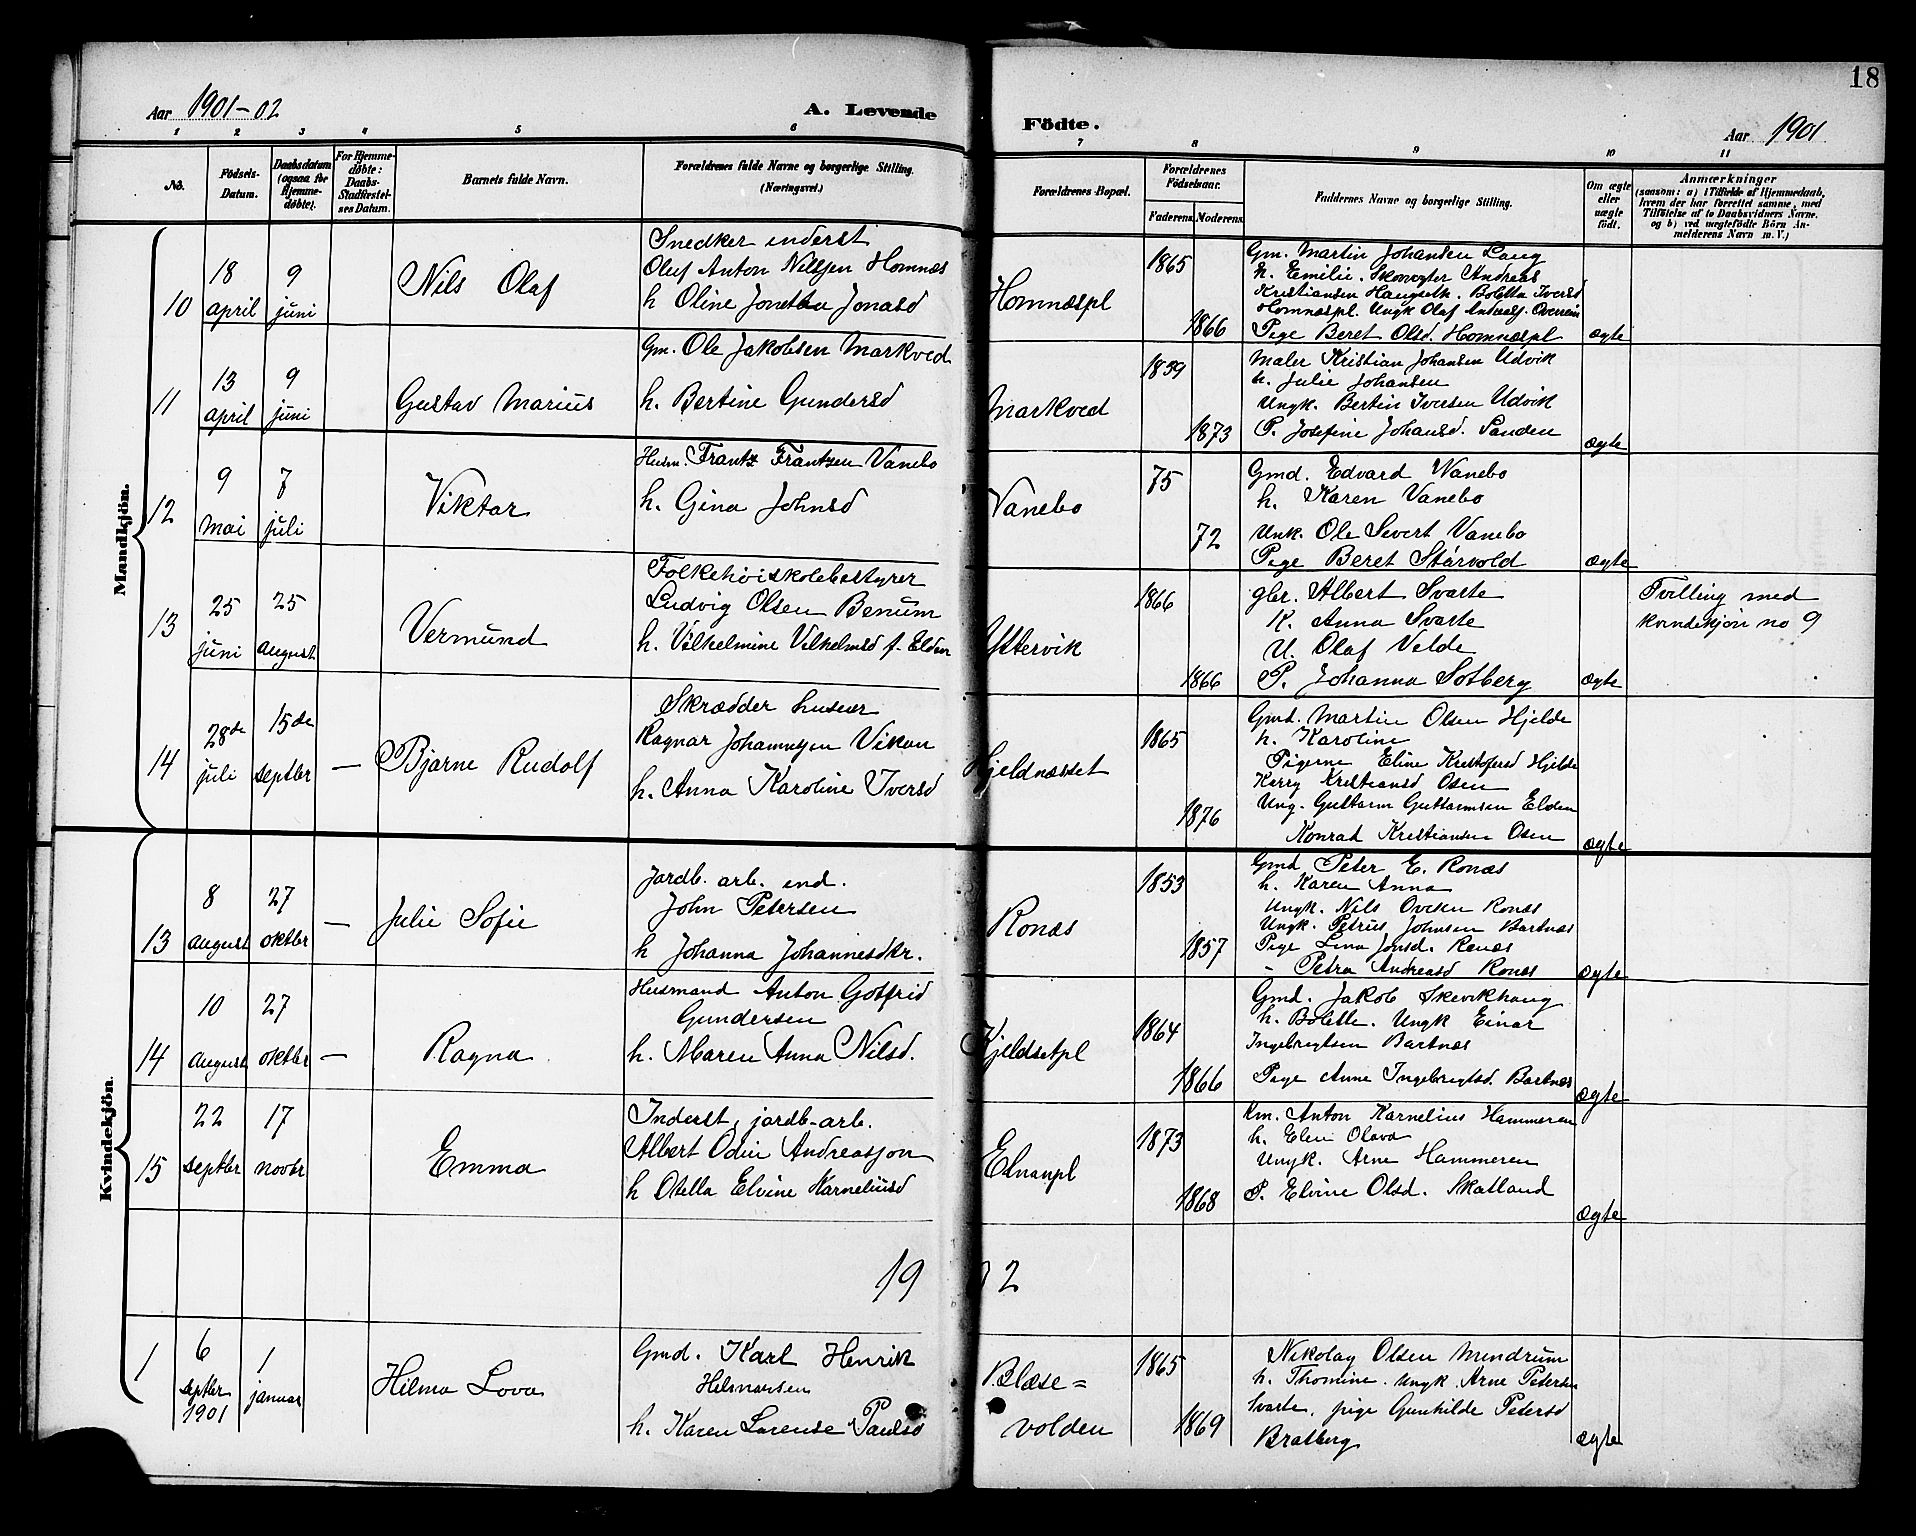 18
Aar 1901-02
A. Levende
Fødte.
Aar 1901
1 2 3 4 5 6 7 8 9 10 11
No.
Fødsels-
Datum.
Daabsdatum
(ogsaa for
Hjemme-
døbte).
For Hjemme-
døbte:
Daabs-
Stadfæstel-
ses Datum.
Barnets fulde Navn.
Forældrenes fulde Navne og borgerlige Stilling.
(Næringsvei.)
Forældrenes Bopæl.
Forældrenes
Fødselsaar.
Faderens. Moderens.
Faddernes Navne og borgerlige Stilling.
Om ægte
eller
uægte
født.
Anmærkninger
(saasom: a) i Tilfælde af Hjemmedaab,
hvem der har forrettet samme, med
Tilføielse af to Daabsvidners Navne.
og b) ved uægtefødte Børn An-
melderens Navn m. V.)
Mandkjön.
10
18
april
9
juni
Nils Olaf
Snedker inderst
Oluf Anton Nilssen Homnæs
h Oline Jonetta Jonasd
Homnæspl
1865
1866
Gm. Martin Johansen Laug
h. Emilie. Skomager Andreas
Kristiansen Haugseth. Boletta Iversd
Homnæspl Ungk Olaf Andreass. Overrein
Pige Beret Olsd. Homnæspl
ægte
11
13
april
9
juni
Gustav Marius
Gm. Ole Jakobsen Markved
h. Bertine Gundersd
Markved
1859
1873
Maler Kristian Johansen Udvik
h. Julie Johansen
Ungk. Bertin Iversen Udvik
P. Josefine Johansd. Sanden
ægte
12
9
mai
7
juli
Viktor
Husm. Frantz Frantzen Vanebo
h. Gina Johnsd
Vanebo
75
72
Gmd. Edvard Wanebo
h. Karen Vanebo
Unk. Ole Severt Vanebo
Pige Beret Størvold
ægte
13
25
juni
25
august
Vermund
Folkehøiskolebestyrer
Ludvig Olsen Benum
h. Vilhelmine Vilhelmsd f. Elden
Yttervik
1866
1866
gbr. Albert Svarte
K. Anna Svarte
U. Olaf Velde
P. Johanna Solberg
ægte
Tvilling med
kvindekjøn no 9
14
28de
juli
15de
septbr
—
Bjarne Rudolf
Skrædder huseier
Ragnar Johannesen Vikan
h. Anna Karoline Iversd
Hjeldnæsset
1865
1876
Gmd. Martin Olsen Hjelde
h. Karoline
Pigerne Eline Kristofersd Hjelde
Kerry Kristiansd Osen
Ung. Guttorm Guttormsen Elden
Konrad Kristiansen Osen
ægte
Kvindekjön.
13
8
august
27
oktbr
—
Julie Sofie
Jordb. arb. ind.
John Petersen
h Johanna Johannesdtr.
Ronæs
1853
1857
Gmd Peter E. Ronæs
h. Karen Anna
Ungk. Nils Ovesen Ronæs
Ungk. Petrus Johnsen Bartnæs
Pige Lina Jonsd. Ronæs
- Petra Andreasd Ronæs
ægte
14
10
august
27
oktbr
—
Ragna
Husmand Anton Gotfrid
Gundersen
h. Maren Anna Nilsd.
Kjeldsetpl
1864
1866
Gmd. Jakob Skevikhaug
h. Bolette. Ungk Einar
Ingebrigtsen Bartnæs
Pige Anne Ingebrigtsd. Bartnæs
ægte
15
22
septbr
17
novbr
Emma
Inderst, jordb-arb.
Albert Odin Andreasson
h Otella Elvine Karneliusd
Elnanpl
1873
1868
Km. Anton Karnelius Hammeren
h. Elen Olava
Ungk. Arne Hammeren
P. Elvine Olsd. Skatland
ægte
19 02
1
6
septbr
1901
1
januar
Hilma Lova
Gmd. Karl Henrik
Helmersen
h. Karen Lorense Paulsd
Blæse=
volden
1865
1869
Nikolay Olsen Mendrum
h. Thomine. Ungk Arne Petersen
Svarte, pige Gunhilde Petersd
Bratberg
ægte